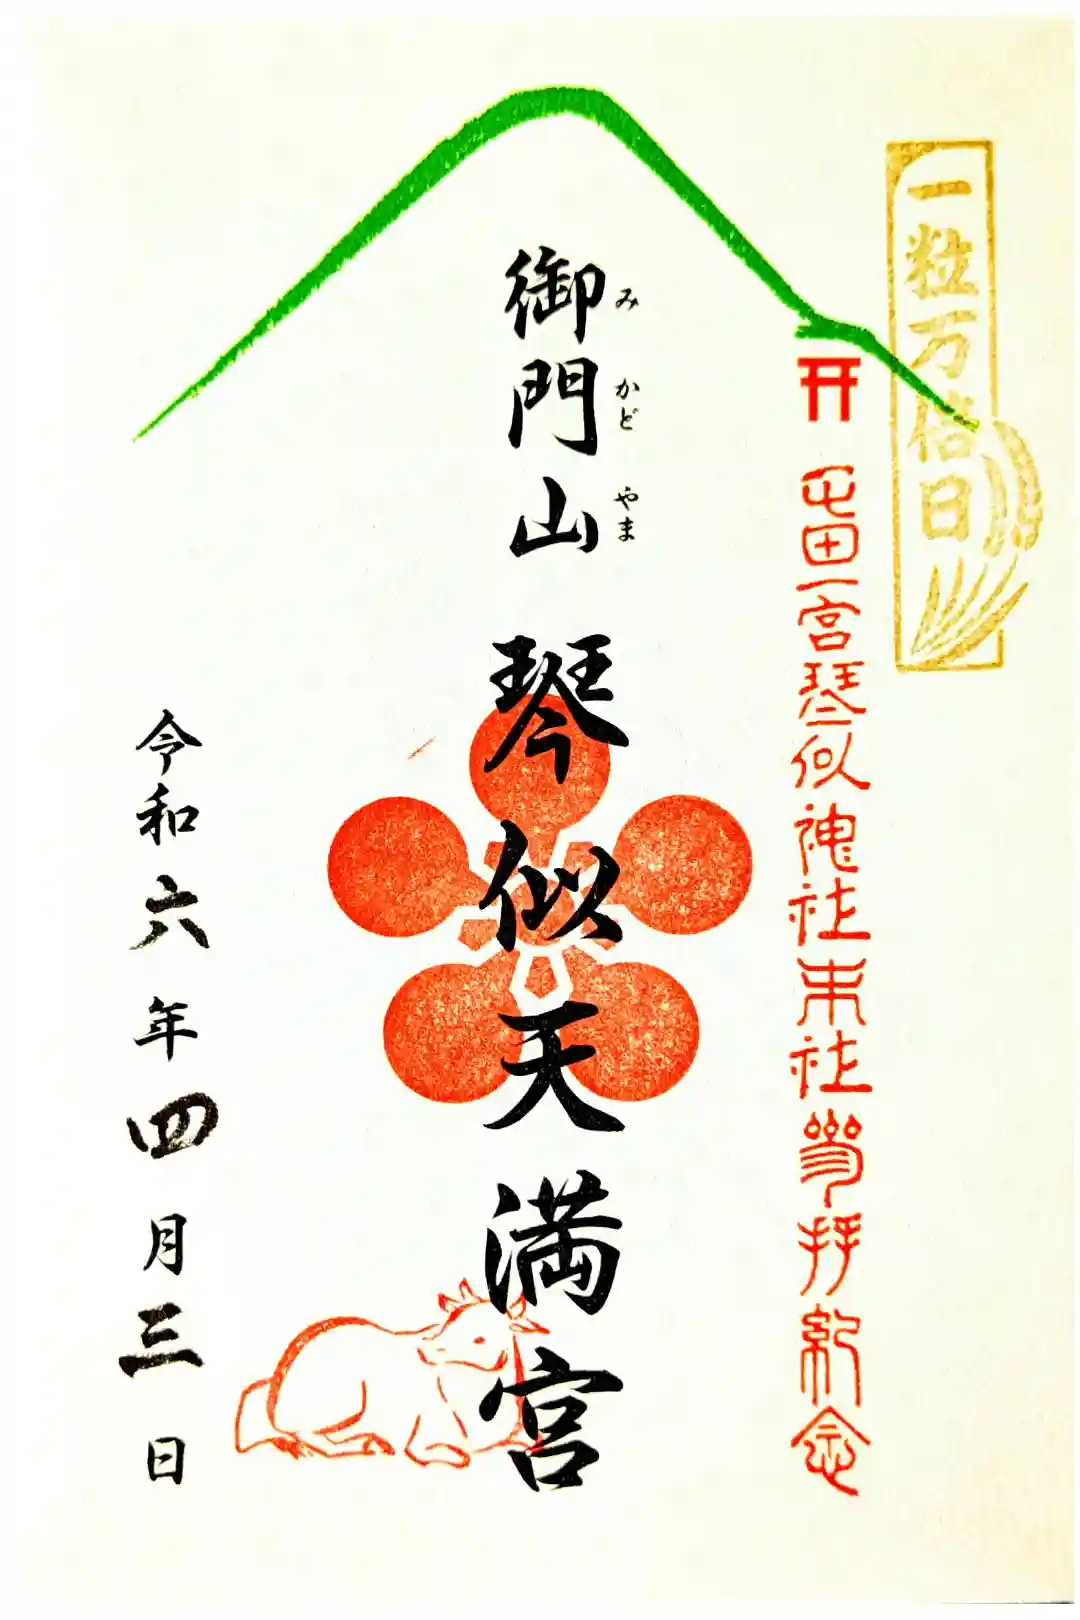 一粒万倍日
屯田一宮琴似神社末社参拝紀念
御門山 琴似天満宮
み かど やま
令和六年四月三日